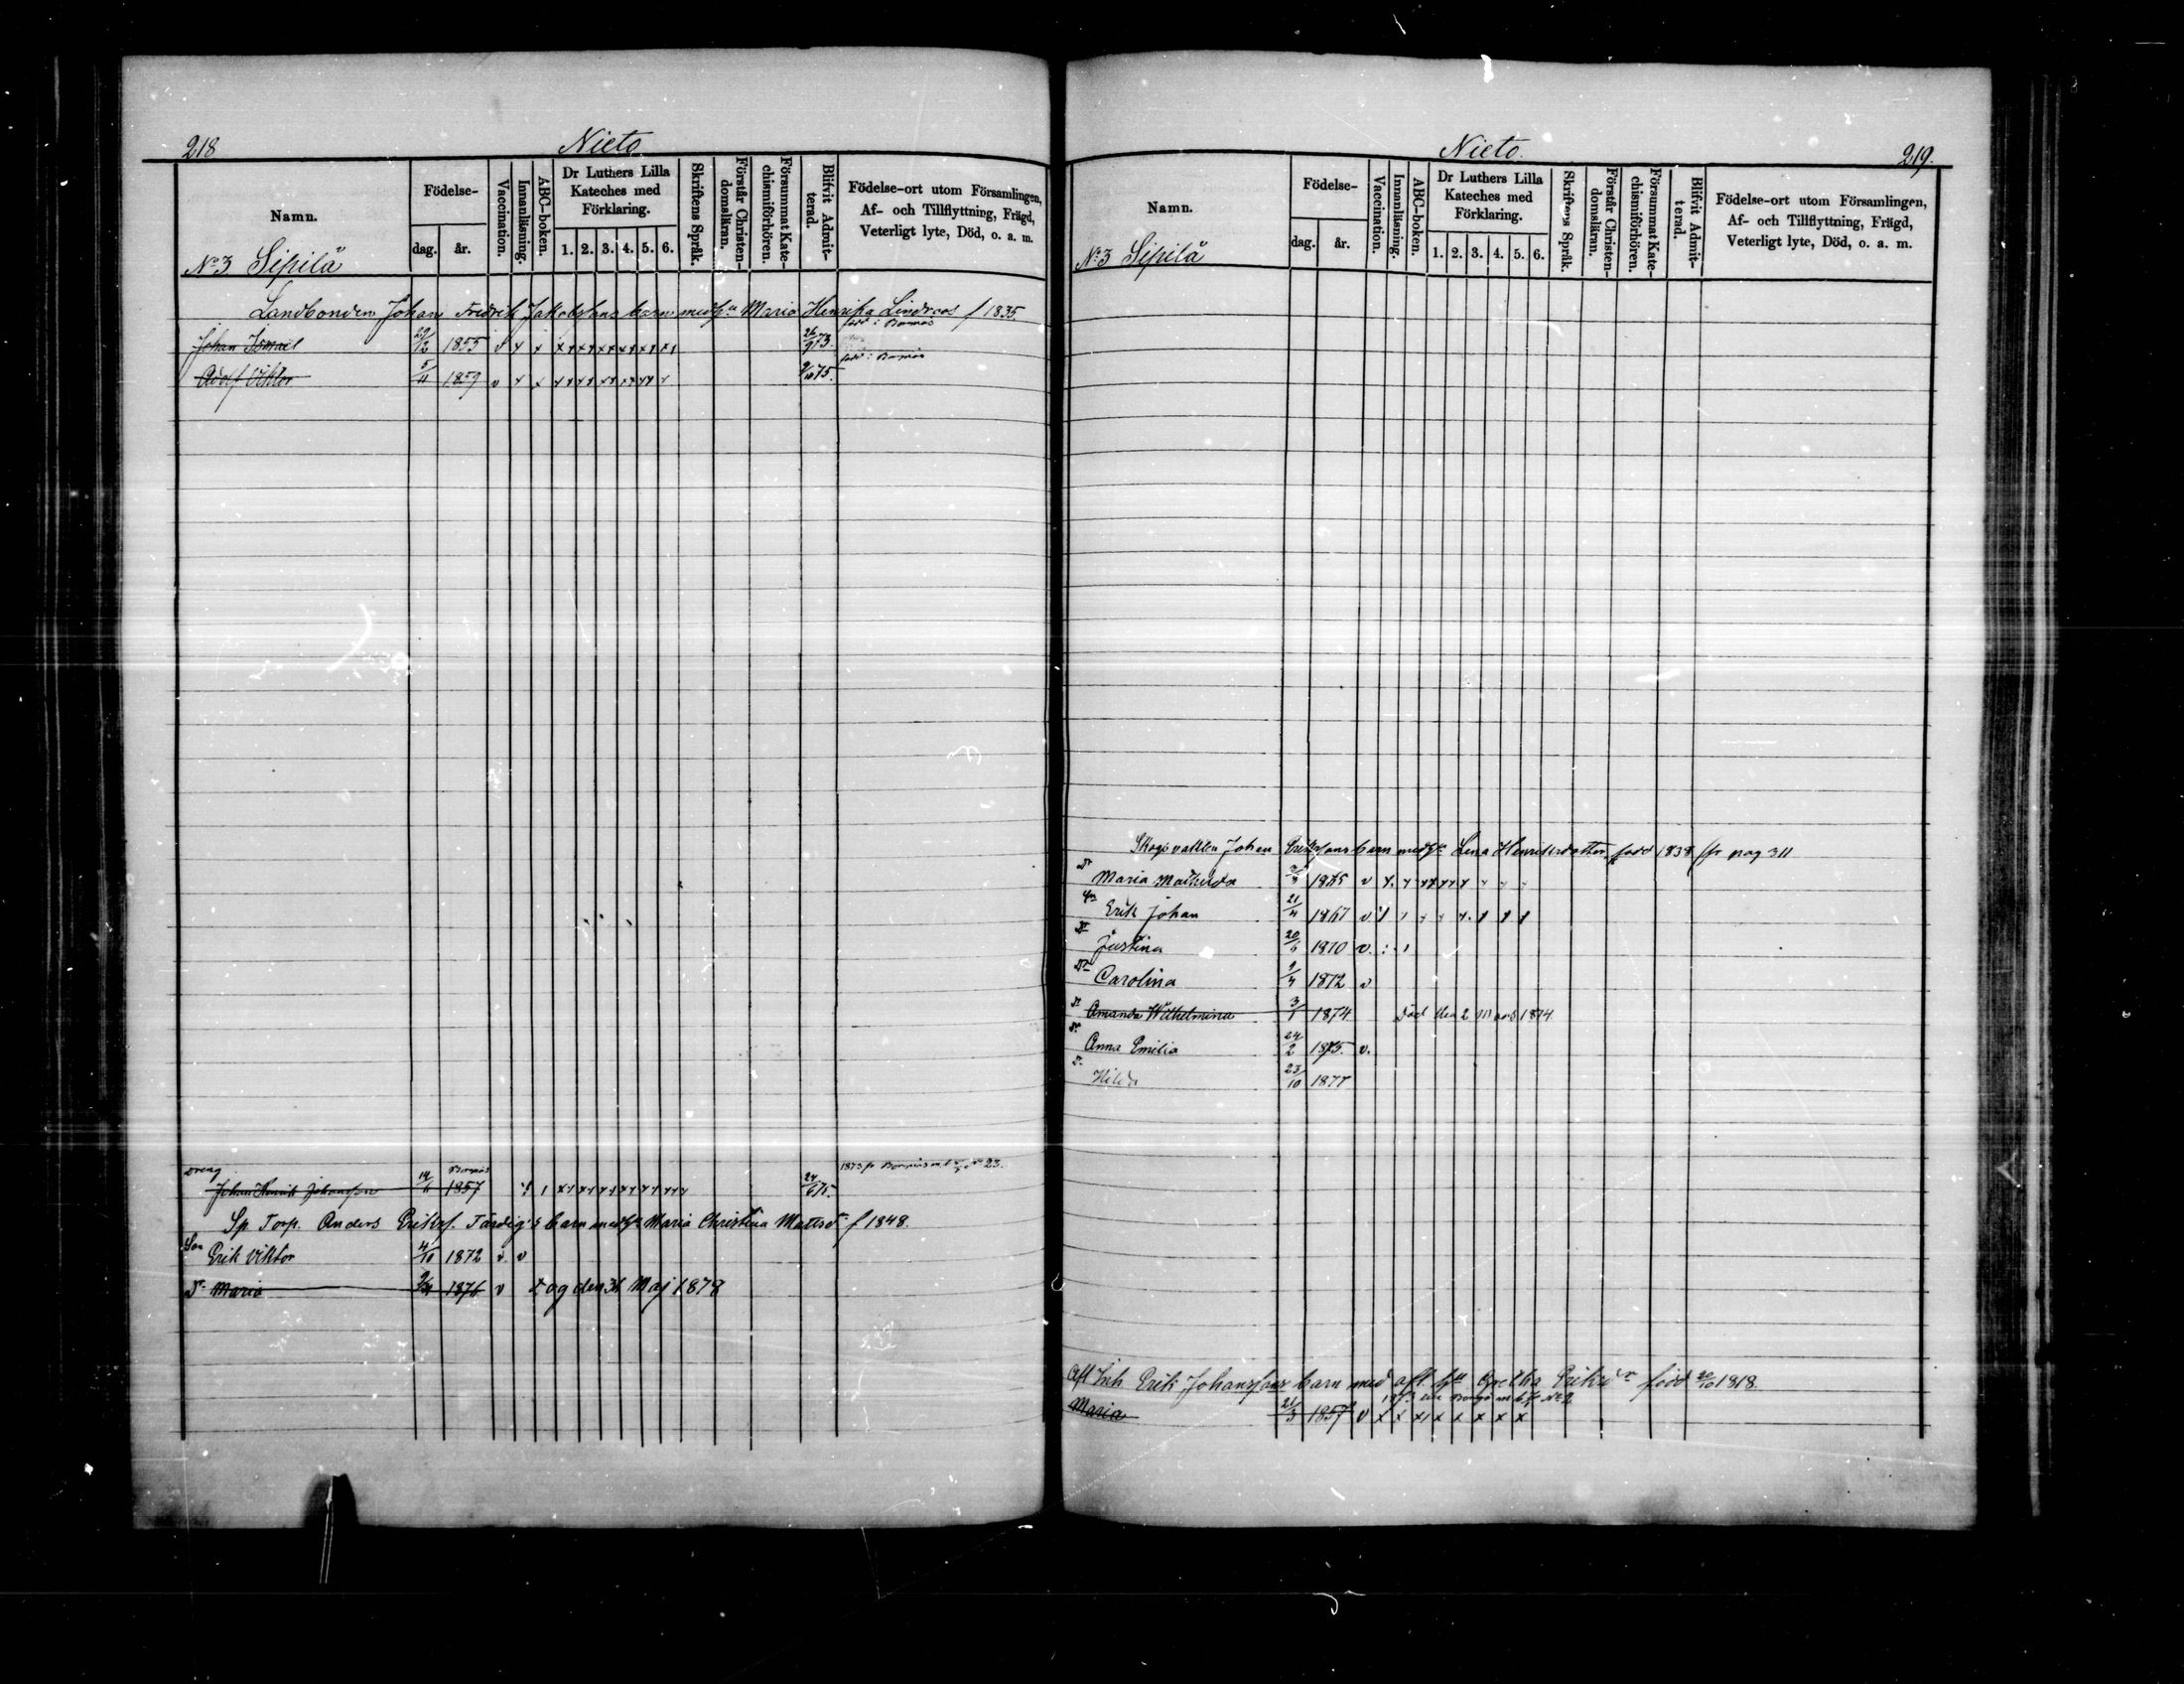 218 Nieto
Namn. Födelse- dag. år. Vaccination. Innanläsning. ABC-boken. Dr Luthers Lilla Kateches med Förklaring. 1. 2. 3. 4. 5. 6. Skriftens Språk. Förstår Christen-domsläran. Försummat Kate-chismiförhören. Blifvit Admit-terad. Födelse-ort utom Församlingen, Af- och Tillflyttning, Frägd, Veterligt lyte, Död, o. a. m.
No 3 Sipilä
Landbonden Johan Fredrik Jakobssons barn med hu Maria Henrika Lindroos f 1835.
Johan Ismael 29/12 1855 v 26/9 73. född i Borgnäs
Adolf Viktor 5/11 1859 v 75. född i Borgnäs
Dreng Johan Henrik Johansson 14/11 1857 24/6 75. 1873 fr Borgnäs No 23.
Sp. Torp. Anders Eriksf. Tardig's barn med hu Maria Christina Mattsdr f 1848.
Son Erik Viktor 4/10 1872 v. v
Dr Maria 1876 v dog den 31 Maj 1878
Nieto. 219.
Namn. Födelse- dag. år. Vaccination. Innanläsning. ABC-boken. Dr Luthers Lilla Kateches med Förklaring. 1. 2. 3. 4. 5. 6. Skriftens Språk. Förstår Christen-domsläran. Försummat Kate-chismiförhören. Blifvit Admit-terad. Födelse-ort utom Församlingen, Af- och Tillflyttning, Frägd, Veterligt lyte, Död, o. a. m.
No 3 Sipilä
Skogsvakten Johan Erikssons barn med hu Lena Henriksdotter född 1838 fr pag 311
Dr Maria Mathilda v
Son Erik Johan 21/4 1867 v
Dr Justina 20/6 1870 v.
Dr Carolina 9/4 1872 v
Dr Amanda Wilhelmina 3/1 1874 Död den 2 Mars 1874
Dr Anna Emilia 24/2 1875. v.
Dr Hilda 23/10 1877
Afl Inh Erik Johanssons barn med afl hu Gretha Eriksdr född 20/10 1818.
Maria 21/3 1857 v